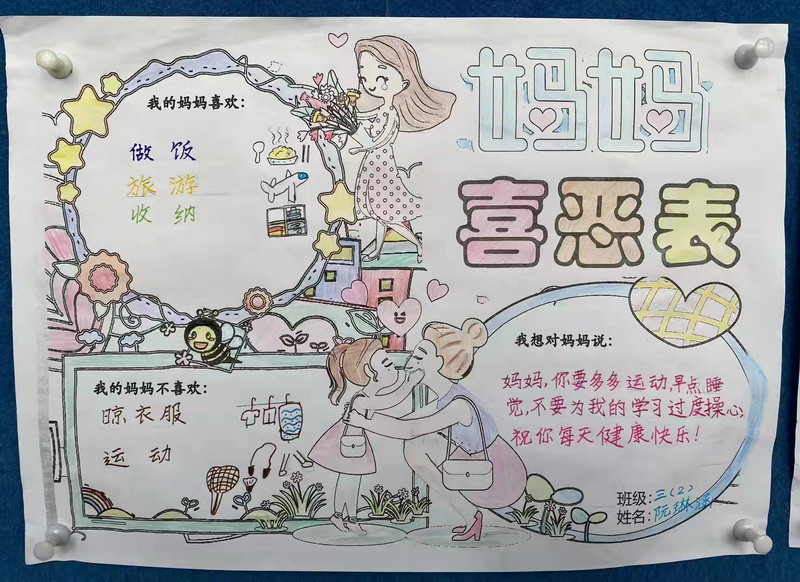 妈妈
喜恶表
我的妈妈喜欢：
做饭
旅游
收纳
我的妈妈不喜欢：
晾衣服
运动
我想对妈妈说：
妈妈，你要多多运动，早点睡
觉，不要为我的学习过度操心，
祝你每天健康快乐！
班级：三(2)
姓名：阮琳